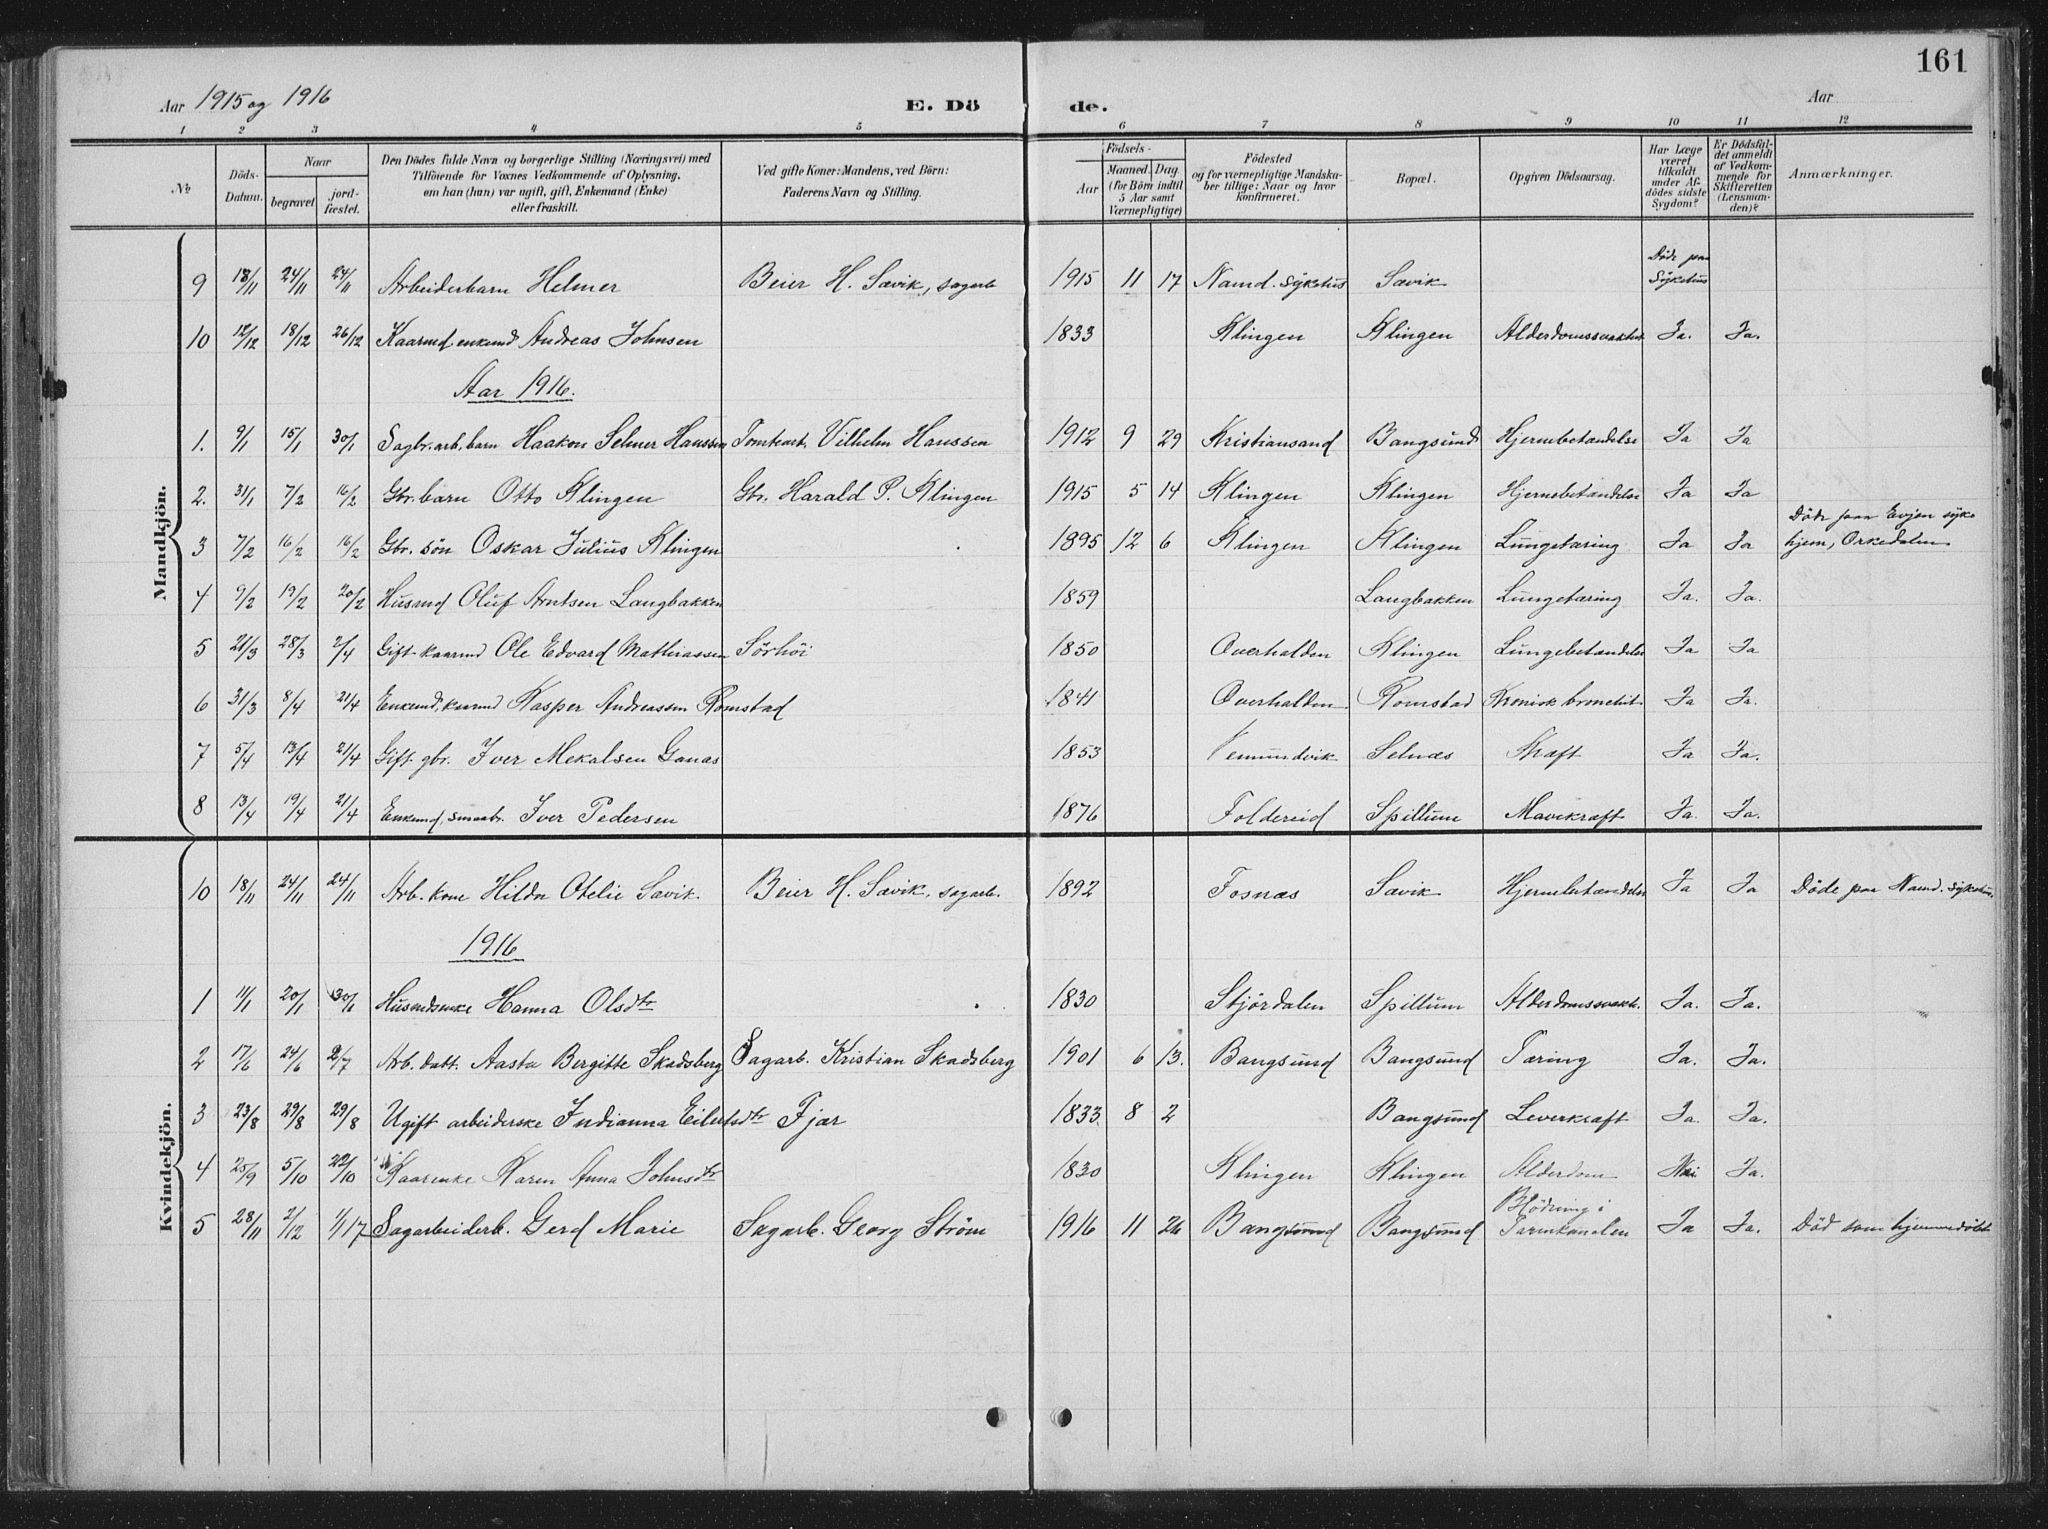 161
Aar 1915 og 1916 E. Dö de. Aar
1 2 3 4 5 6 7 8 9 10 11 12
No Döds-Datum. Naar begravet jordfæstet. Den Dödes fulde Navn og borgerlige Stilling (Næringsvei) med Tilföiende for Voxnes Vedkommende af Oplysning, om han (hun) var ugift, gift, Enkemand (Enke) eller fraskilt. Ved gifte Koner: Mandens, ved Börn: Faderens Navn og Stilling. Födsels- Aar Maaned. Dag (for Börn indtil 5 Aar samt Værnepligtige) Födested og for værnepligtige Mandskaber tillige: Naar og hvor konfirmeret. Bopæl. Opgiven Dödsaarsag. Har Læge været tilkaldt under Afdödes sidste Sygdom? Er Dödsfaldet anmeldt af Vedkommende for Skifteretten (Lensmanden)? Anmærkninger.
Mandkjön.
9 18/11 24/11 24/11 Arbeiderbarn Helmer Beier H. Sævik, sagarb 1915 11 17 Namd. Sykehus Sævik Döde paa Sykehus
10 12/12 18/12 26/12 Kaarmd enkemd Andreas Johnsen 1833 Klingen Klingen Alderdomssvakhet Ja. Ja.
Aar 1916.
1. 9/1 15/1 30/1 Sagbr. arb. barn Haakon Selmer Hanssen Tomtearb. Vilhelm Hanssen 1912 9 29 Kristiansand Bangsund Hjernebetændelse Ja Ja
2. 31/1 7/2 16/2 Gbr. barn Otto Klingen Gbr. Harald P. Klingen 1915 5 14 Klingen Klingen Hjernebetændelse Ja Ja
3 7/2 16/2 16/2 Gbr. sön Oskar Julius Klingen 1895 12 6 Klingen Klingen Lungetæring Ja Ja Döde paa Evjen sykehjem, Orkedalen
4 9/2 19/2 20/2 Husmd Oluf Arntsen Langbakken 1859 Langbakken Lungetæring Ja. Ja.
5 21/3 28/3 2/4 Gift kaarmd Ole Edvard Mathiassen Sörhöi 1850 Overhalden Klingen Lungebetændelse Ja Ja
6 31/3 8/4 21/4 Enkemd, kaarmd Kasper Andreassen Romstad 1841 Overhalden Romstad Kronisk bronchit Ja Ja.
7 5/4 13/4 21/4 Gift gbr. Iver Mekalsen Ganas 1853 Vemundvik Selnæs Kræft Ja Ja.
8 13/4 19/4 21/4 Enkemd, smaabr. Iver Pedersen 1876 Foldereid Spillum Mavekræft Ja. Ja.
Kvindekjön.
10 18/11 24/11 24/11 Arb. kone Hilda Otelie Sævik. Beier H. Sævik, sagarb. 1892 Fosnæs Sævik Hjernebetændelse Ja Ja Döde paa Namd. Sykehus.
1916
1 11/1 20/1 30/1 Husmdsenke Hanna Olsdtr 1830 Stjördalen Spillum Alderdomssvakh. Ja. Ja.
2 17/6 24/6 2/7 Arb. datt. Aasta Bergitte Skadsberg Sagarb. Kristian Skadsberg 1901 6 13. Bangsund Bangsund Tæring Ja. Ja.
3 23/8 29/8 29/8 Ugift arbeiderske Indianna Eilertsdtr Fjær 1833 8 2 Bangsund Leverkræft Ja. Ja.
4 25/9 5/10 22/10 Kaarenke Karen Anna Johnsdtr 1830 Klingen Klingen Alderdom Nei Ja.
5 28/11 2/12 1/1 17 Sagarbeiderb. Gerd Marie Sagarb. Georg Ström 1916 11 26 Bangsund Bangsund Blödning i Tarmkanalen Ja Ja. Död som hjemmedöbt